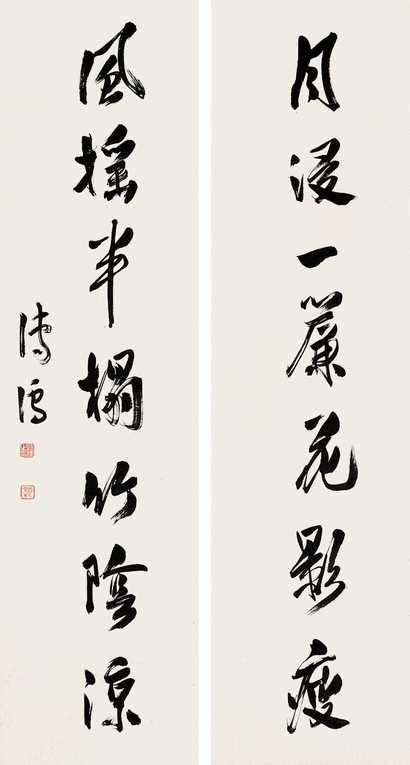 月浸一簾花影瘦
風搖半榻竹陰涼
溥儒